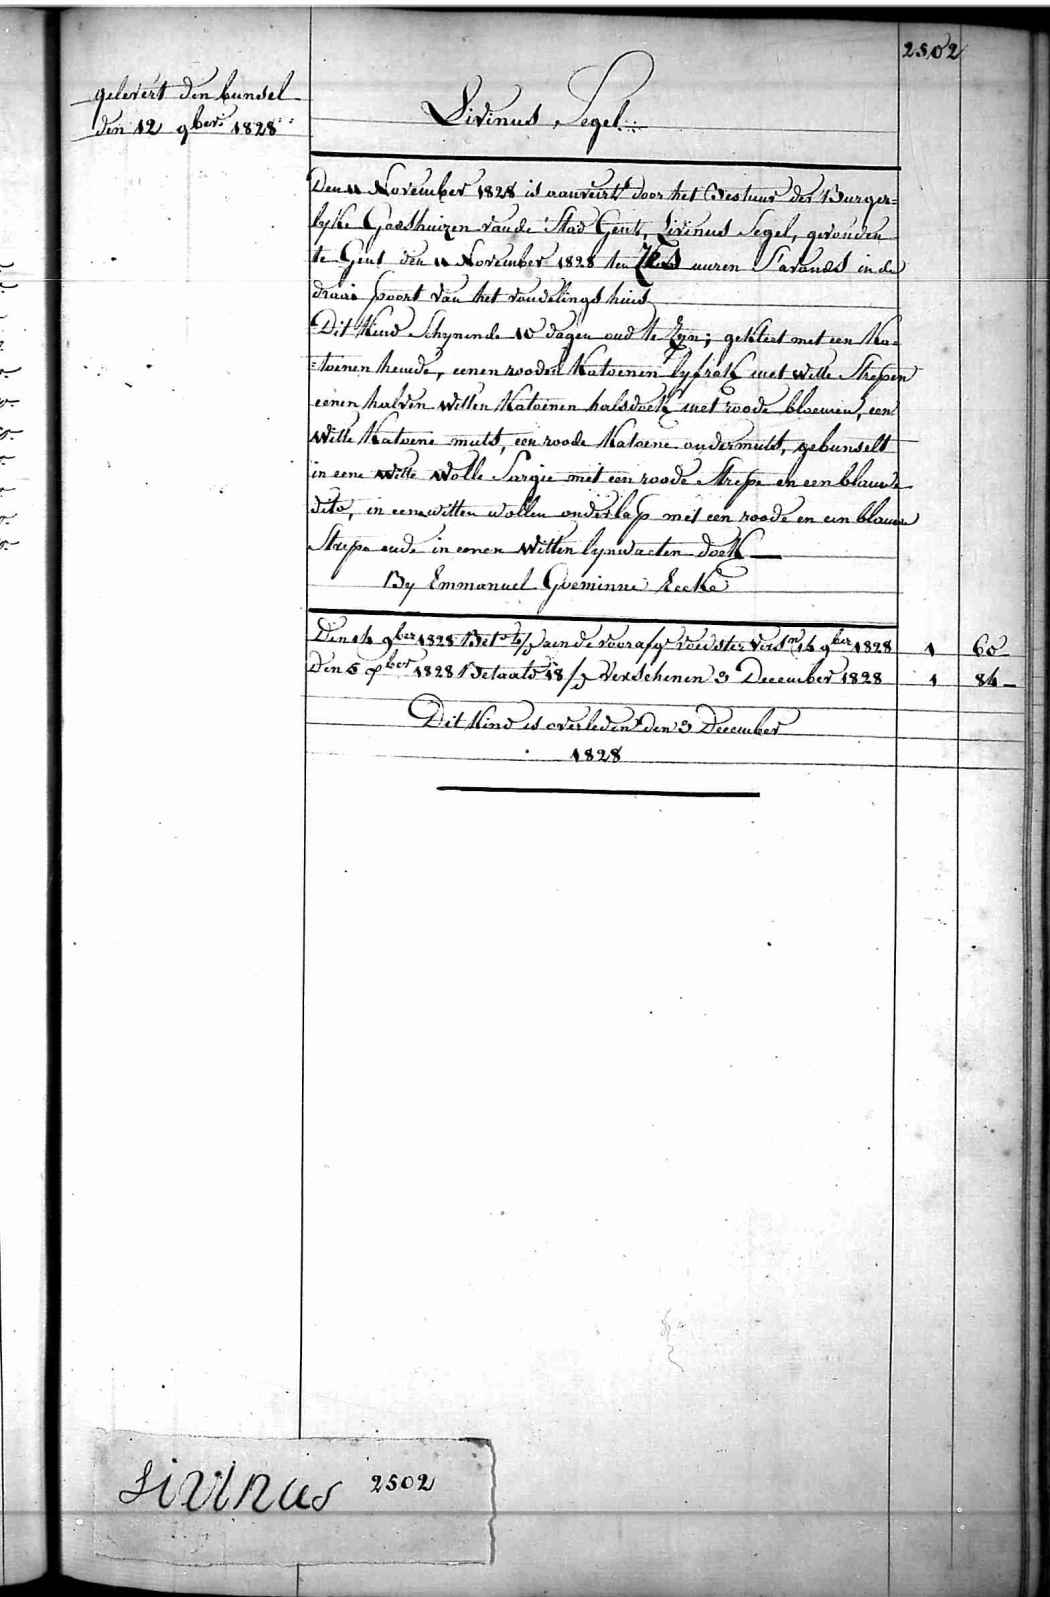 2502
gelevert den bunsel
den 12 9ber 1828
Livinus Segel
Den 11 November 1828 is aanveirt door het Bestuur der Burger=
lyke Godshuizen van de Stad Gent, Livinus Segel, gevonden
te Gent den 11 November 1828 ten uuren S'avonds in de
draai poort van het vondelings huis
Dit Kind Schynende 10 dagen oud te Zyn; gekleet met een Ka=
=toenen hemde, eenen rooden Katoenen lyfrok met witte Strepen
eenen halven witten Katoenen halsdoek met roode bloemen, een
witte Katoene muts, een roode Katoene ondermuts, gebunselt
in eene witte wolle Sargie met een roode Strepe en een blauwe
dito, in eene witten wollen onderlap met een roode en een blauwe
Strepe ende in eenen witten lynwaeten doek
By Emmanuel Goeminne Eecke
Den 14 9ber 1828 Bet aen de voorafge voedster Vers 14 9ber 1828 1 60
Den 5 ber 1828 Betaald 18/ Verschenen 3 December 1828 1 84
Dit Kind is overleden den 3 December
1828
Livinus 2502